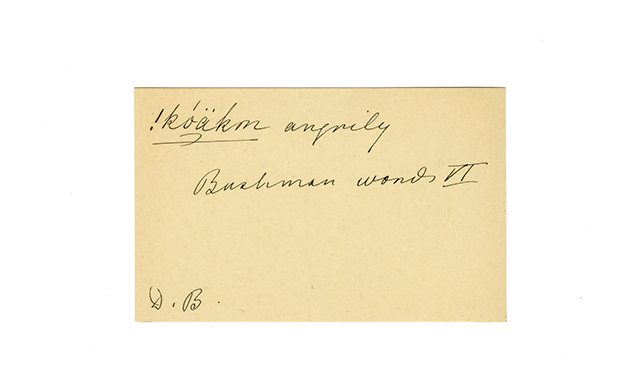 !kóäkǝn angrily
Bushman words VI
D. B.